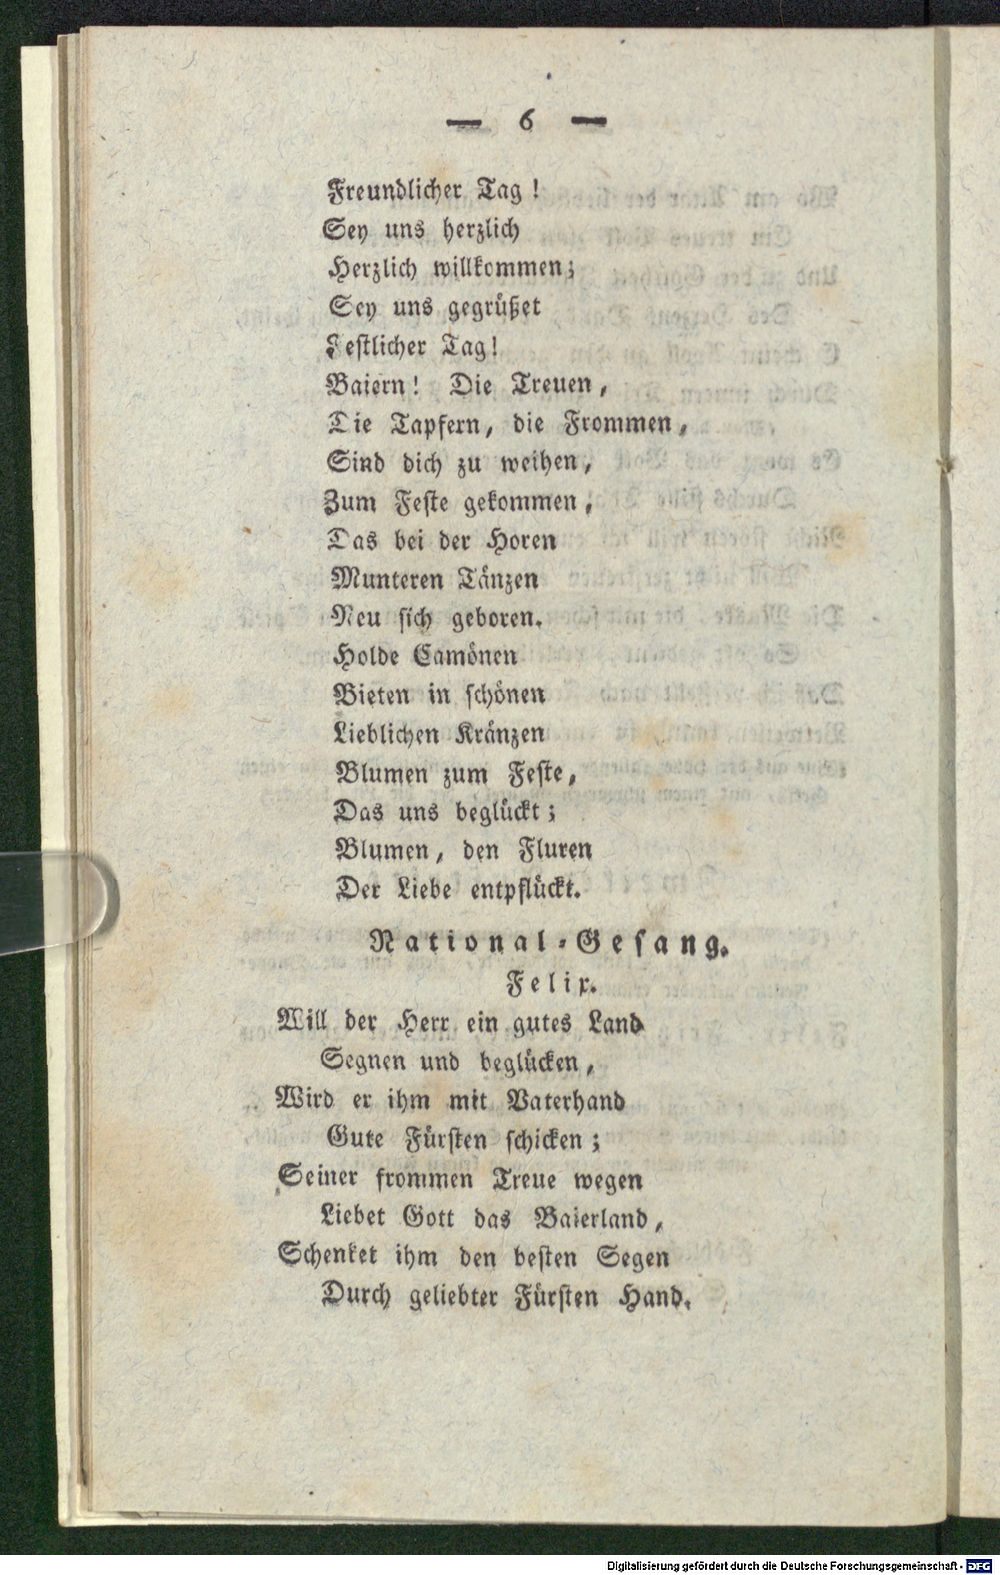 — 6 —
Freundlicher Tag!
Sey uns herzlich
Herzlich willkommen;
Sey uns gegrüßet
Festlicher Tag!
Baiern! Die Treuen,
Die Tapfern, die Frommen,
Sind dich zu weihen,
Zum Feste gekommen,
Das bei der Horen
Munteren Tänzen
Neu sich geboren.
Holde Camönen
Bieten in schönen
Lieblichen Kränzen
Blumen zum Feste,
Das uns beglückt;
Blumen, den Fluren
Der Liebe entpflückt.
National-Gesang.
Felix.
Will der Herr ein gutes Land
Segnen und beglücken,
Wird er ihm mit Vaterhand
Gute Fürsten schicken;
Seiner frommen Treue wegen
Liebet Gott das Baierland,
Schenket ihm den besten Segen
Durch geliebter Fürsten Hand.
Digitalisierung gefördert durch die Deutsche Forschungsgemeinschaft - DFG